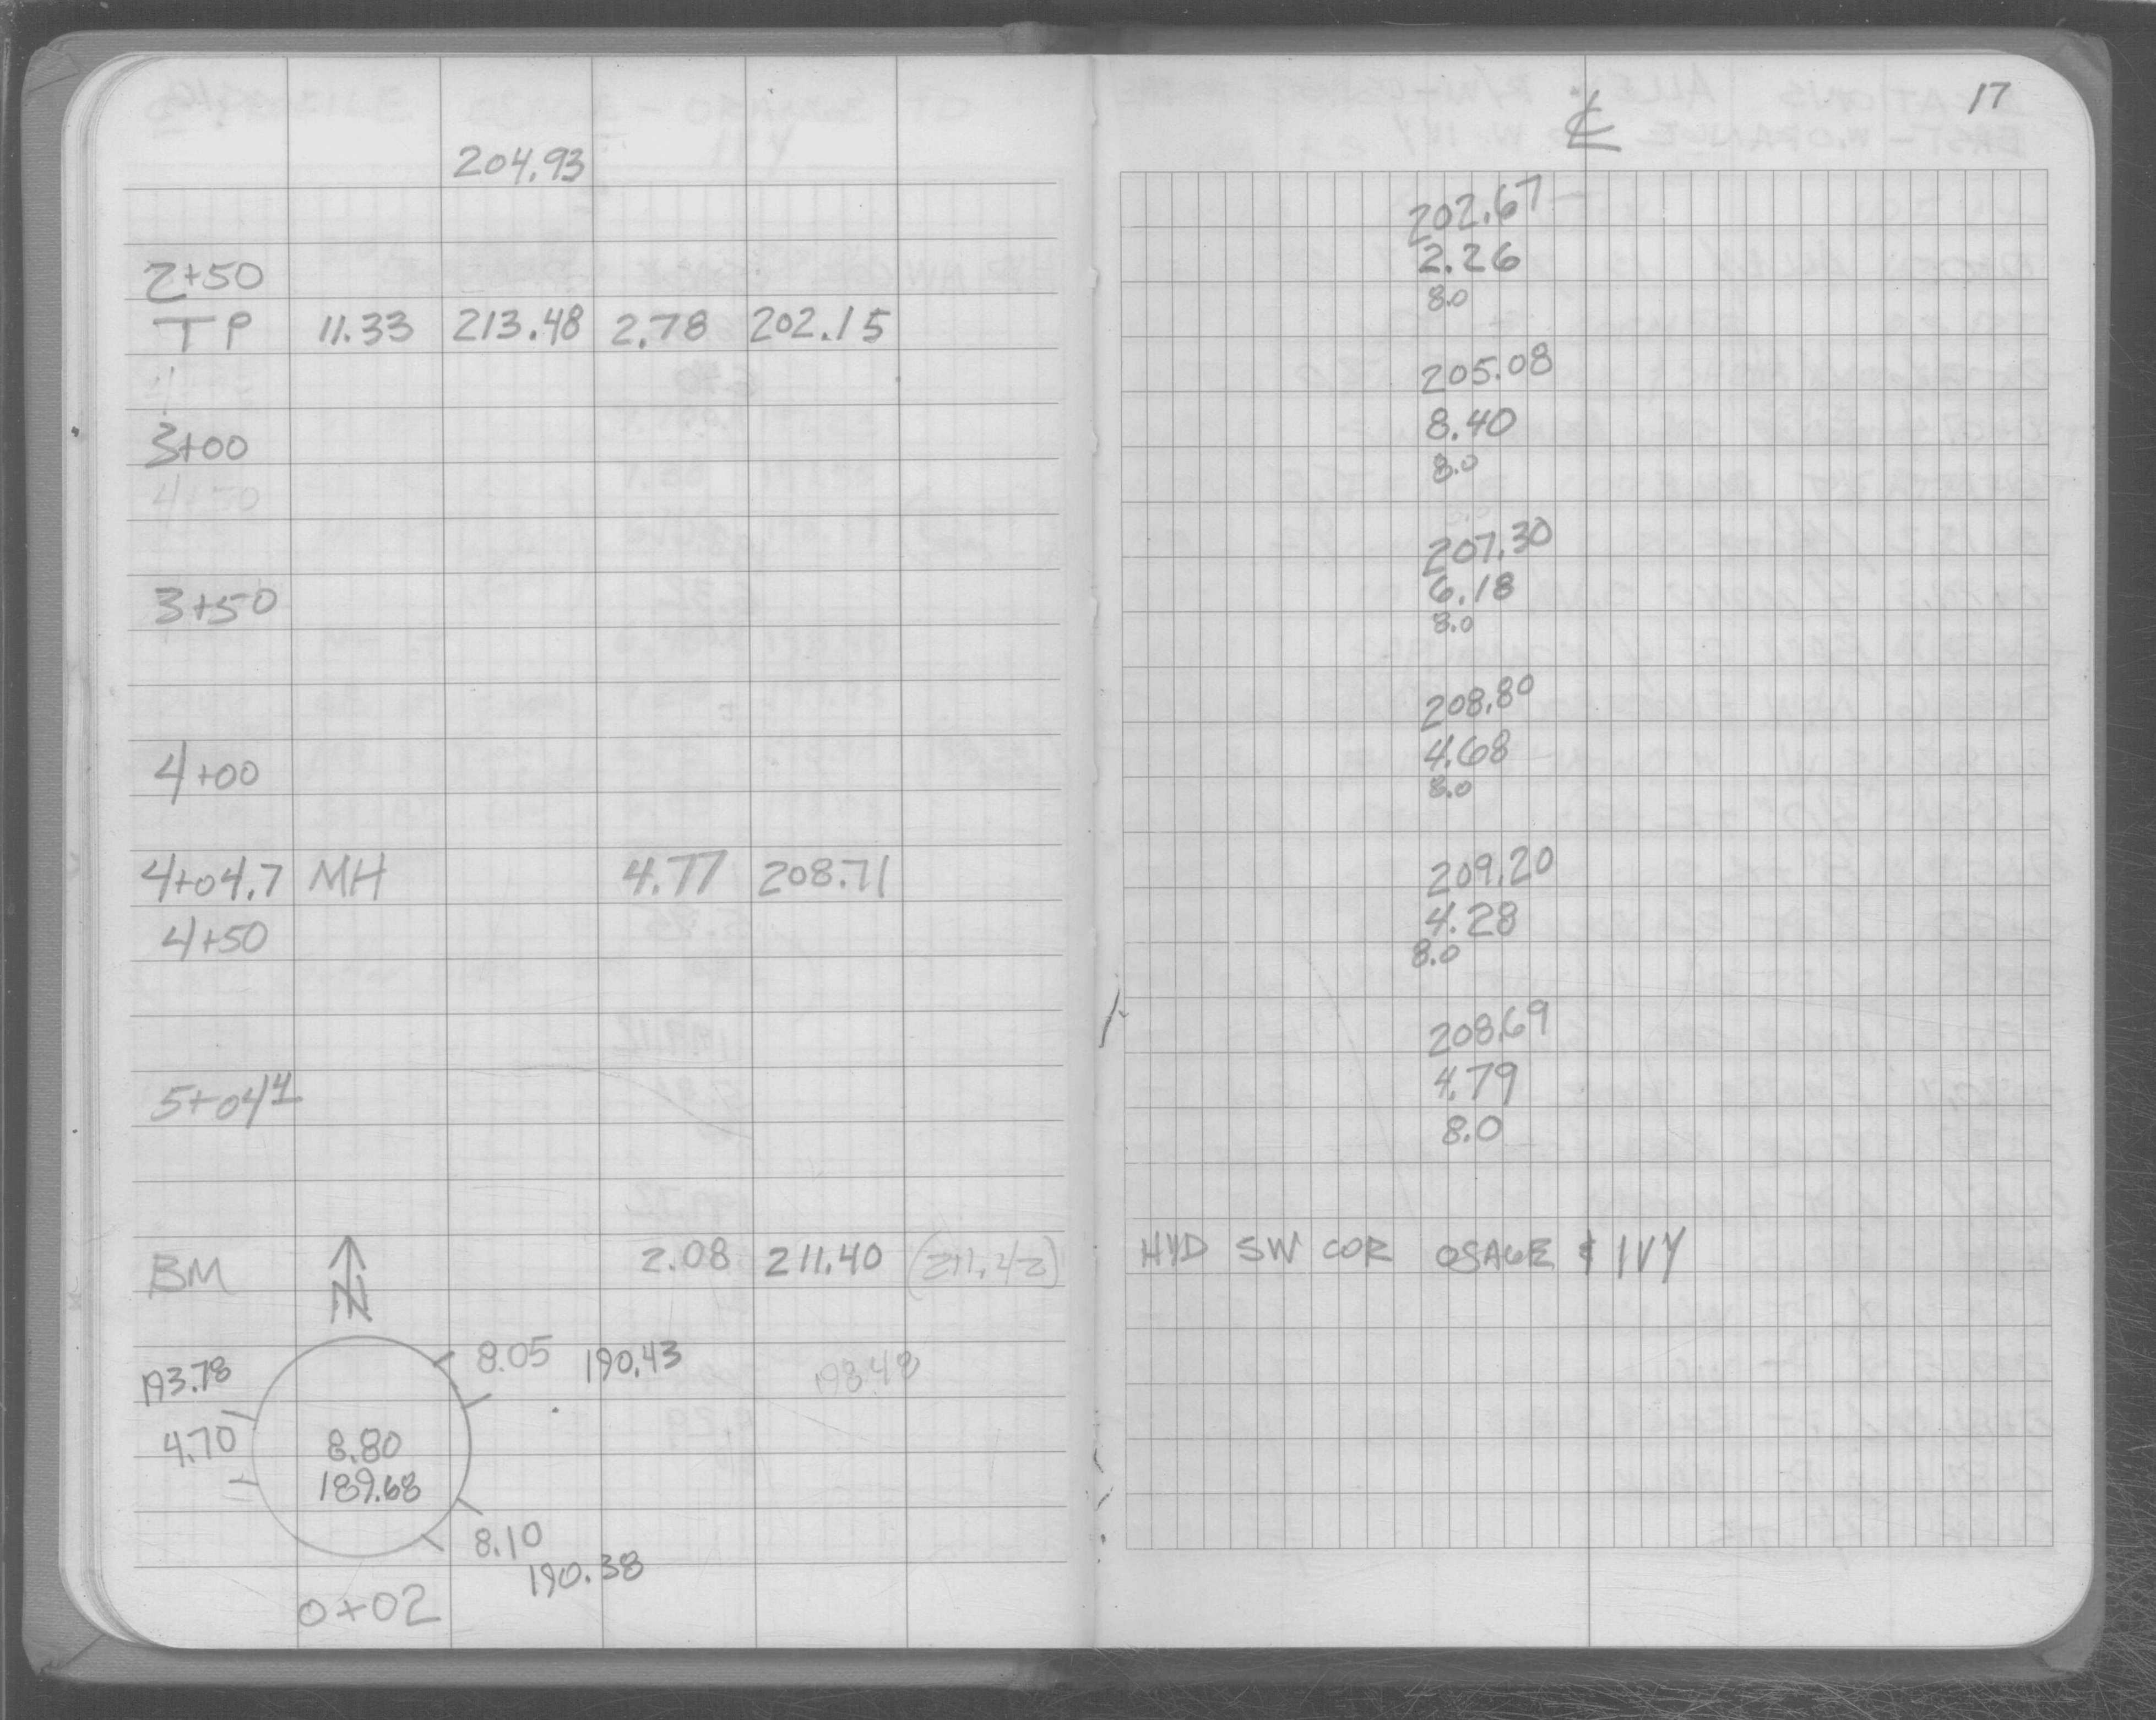 204.93
2+50
TP 11.33 213.48 2.78 202.15
3+00
3+50
4+00
4+04.7 MH 4.77 208.71
4+50
5+04
BM 2.08 211.40 (211.42)
N
193.78 8.05 190.43 198.48
4.70 8.80
189.68
8.10
190.38
0+02
17
℄
202.67
2.26
8.0
205.08
8.40
8.0
207.30
6.18
8.0
208.80
4.68
8.0
209.20
4.28
8.0
208.69
4.79
8.0
HYD SW COR OSAGE & IVY